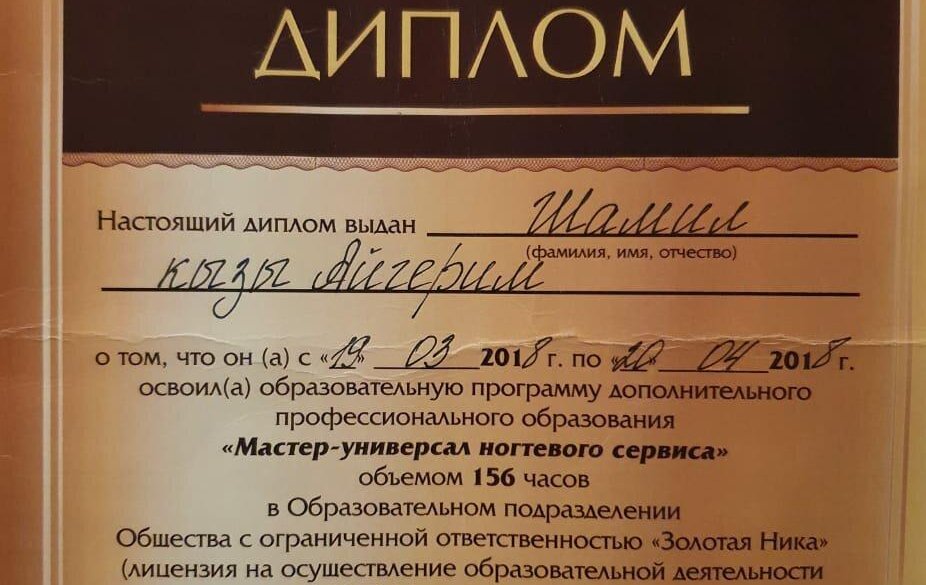 ДИПЛОМ
Настоящий диплом выдан Шамил
(фамилия, имя, отчество)
кызы Айгерим
о том, что он (а) с «19» 03 2018 г. по «20» 04 2018 г.
освоил(а) образовательную программу дополнительного
профессионального образования
«Мастер-универсал ногтевого сервиса»
объемом 156 часов
в Образовательном подразделении
Общества с ограниченной ответственностью «Золотая Ника»
(лицензия на осуществление образовательной деятельности